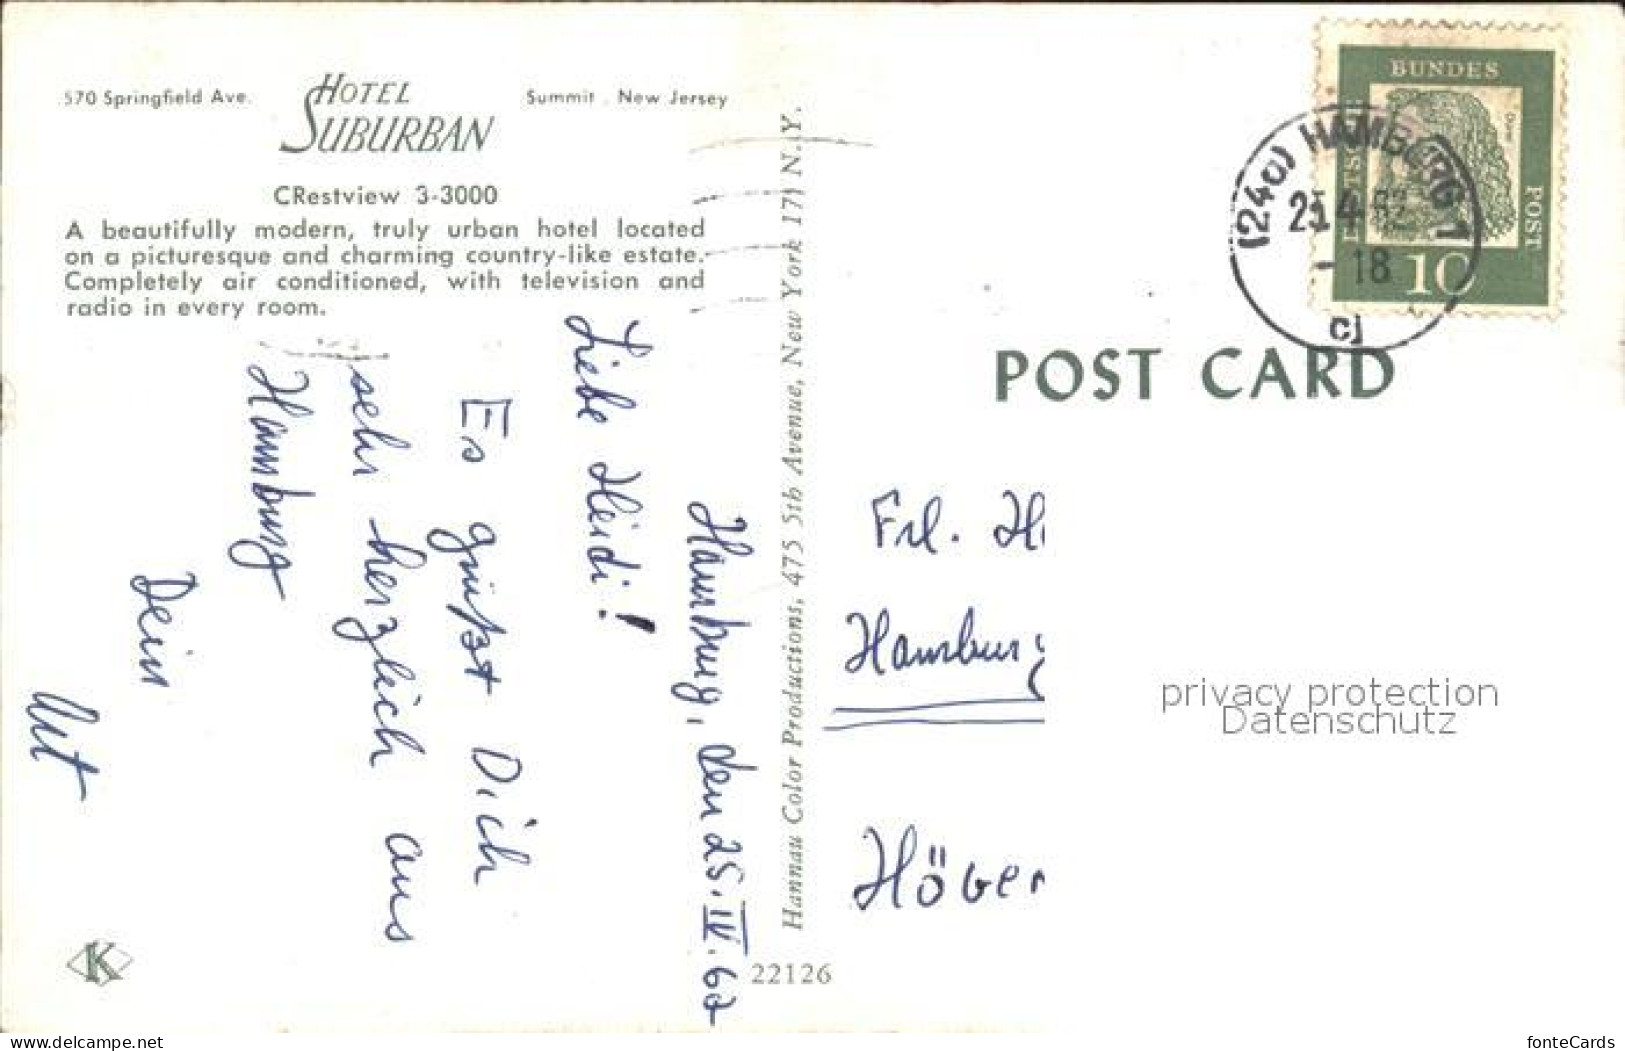 570 Springfield Ave.
HOTEL
SUBURBAN
Summit, New Jersey
CRestview 3-3000
A beautifully modern, truly urban hotel located
on a picturesque and charming country-like estate.
Completely air conditioned, with television and
radio in every room.
Hamburg, den 25.IV.62
Liebe Heidi!
Es grüßt Dich
sehr herzlich aus
Hamburg
Dein
K
22126
Hannau Color Productions, 475 5th Avenue, New York 17, N.Y.
BUNDES
POST
10
(24a) HAMBURG 1
4.62
- 18
cj
POST CARD
Frl. H
Hamburg
Höver
privacy protection
Datenschutz
www.ansichtskartenversand.com
fonteCards